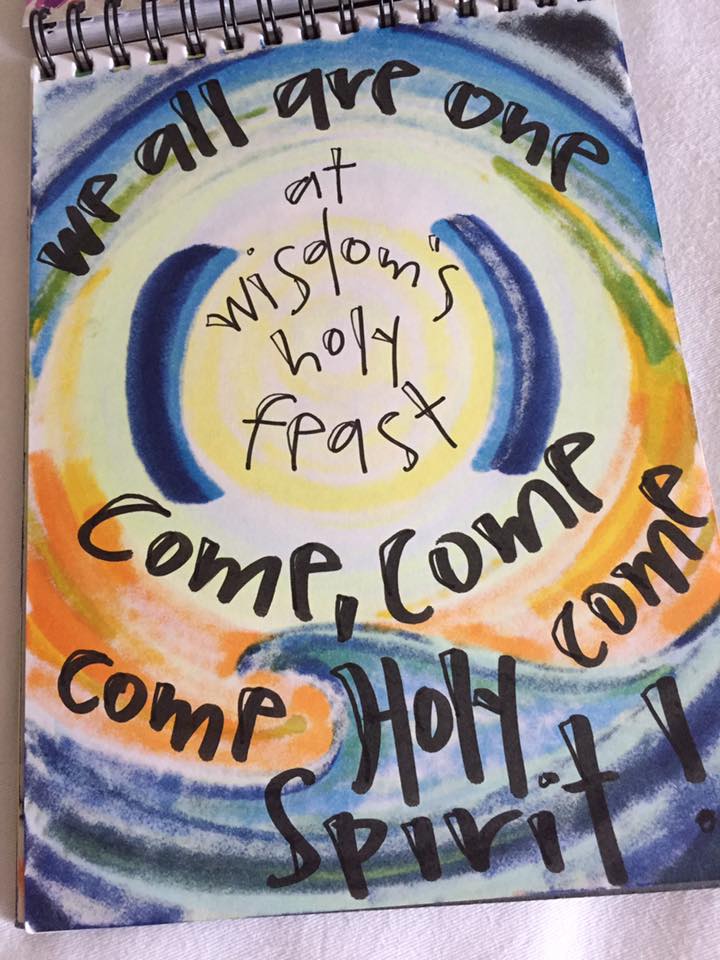 we all are one
at
wisdom's
holy
feast
Come, Come
come
come Holy
Spirit!